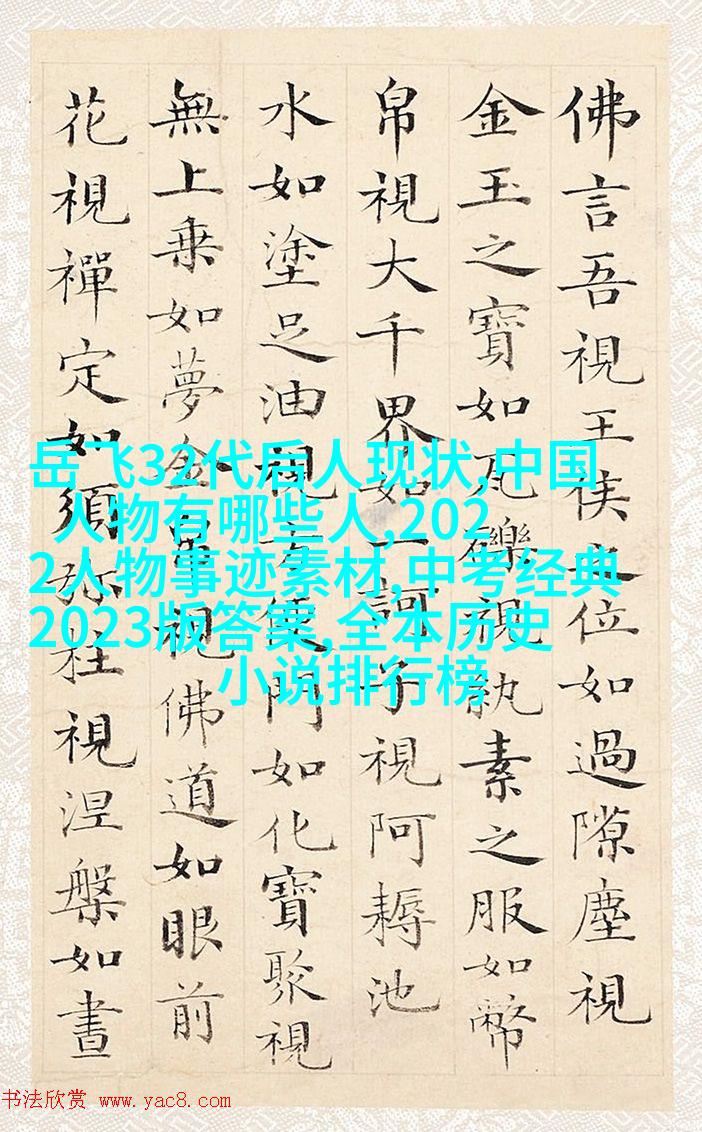 佛言吾視王侯之位如過隙塵視
金玉之寶如瓦礫視紈素之服如幣
帛視大千界如一訶子視阿耨池
水如塗足油視方便門如化寶聚視
無上乗如夢金帛視佛道如眼前
花視禪定如須弥柱視涅槃如晝
岳飞32代后人现状,中国
人物有哪些人,202
2人物事迹素材,中考经典
2023版答案,全本历史
小说排行榜
书法欣赏 www.yac8.com